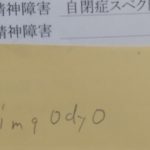 精神障害 自閉症スペク
精神障害
imqOdyO